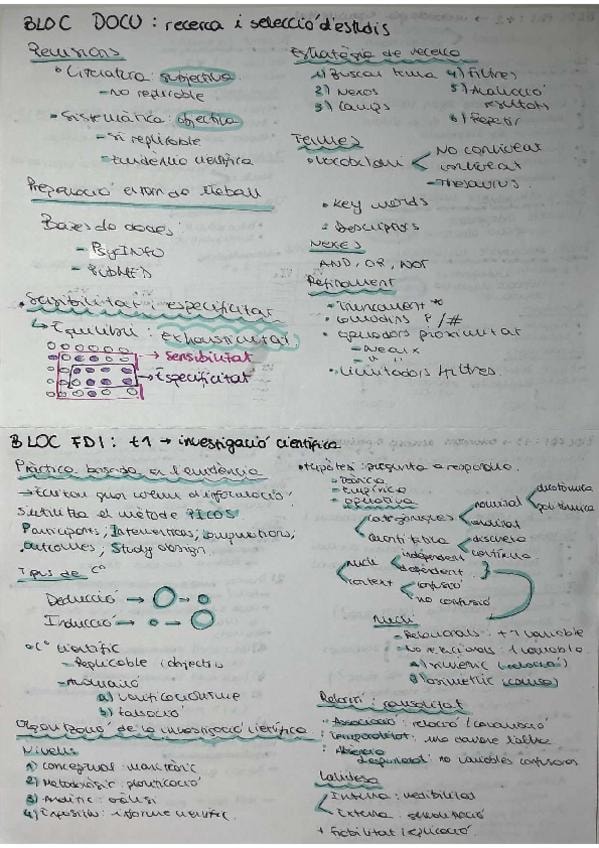 BLOC DOCU: recerca i selecció d'estudis
Revisions
• Literatura: subjectiva
- no replicable
• Sistemàtica: objectiva
- sí replicable
- Evidència científica
Preparació entorn de treball
Bases de dades:
- PsycINFO
- PubMED
• Sensibilitat i especificitat
↳ Equilibri: exhaustivitat
→ sensibilitat
→ Especificitat
Estratègia de recerca
1) Buscar tema
2) Nexes
3) Camps
4) Filtres
5) Avaluació resultats
6) Repetir
Termes
• Vocabulari
No controlat
controlat
- Thesaurus
• Key words
• Descriptors
Nexes
AND, OR, NOT
Refinament
• Truncament *
• comodins ? / #
• operadors proximitat
- Near x
- " "
• Limitadors filtres
BLOC FDI: t1 → investigació científica
Pràctica basada en l'evidència
S'utilitza el mètode PICOS
Participants, Intervention, comparations,
outcomes, study design.
Tipus de Cº
Deducció →
Inducció →
• Cº científic
- Replicable i objectiu
a) verificacionisme
b) falsació
Organització de la investigació científica
Nivells
1) conceptual: marc teòric
2) Metodològic: planificació
3) Analític: anàlisi
4) Expositiu: informe científic
• Hipòtesi: pregunta a respondre.
• Teòrica
• empírica
• operativa
categòriques
nominal
dicotòmica
politòmica
ordinal
quantitativa
discreta
contínua
nucli
independent
dependent
context
confusió
no confusió
Nucli
- Relacionals: + 1 variable
- No relacionals: 1 variable
a) simètric (relació)
b) asimètric (causa)
Relació: causalitat
• Associació: relació / covariació
• Temporalitat: una davant l'altre
• Absència
: no variables confusores
Validesa
Interna:
Externa: generalització
+ fiabilitat i replicació.